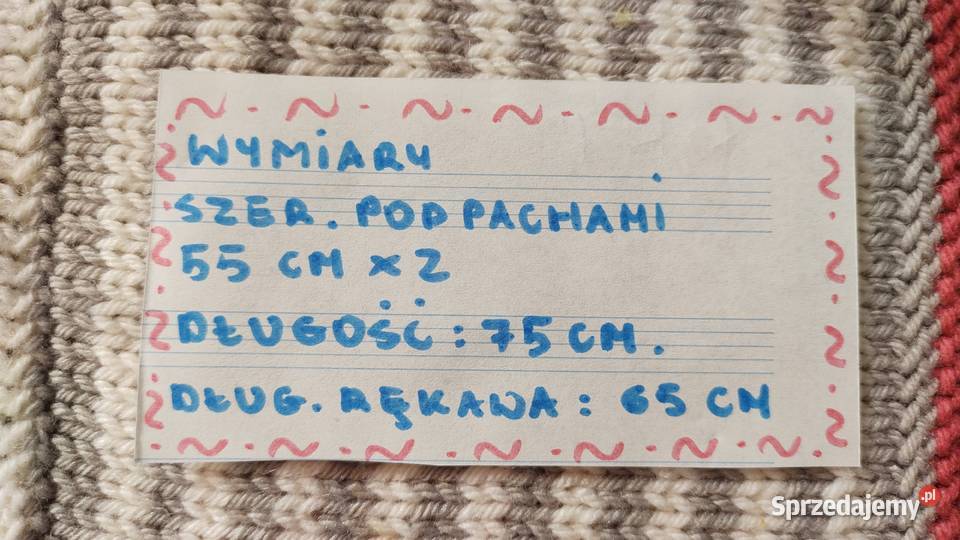 WYMiARY
SZER. POD PACHAMi
55 CM x 2
DŁUGOŚĆ : 75 CM.
DŁUG. RĘKAWA : 65 CM
Sprzedajemy.pl